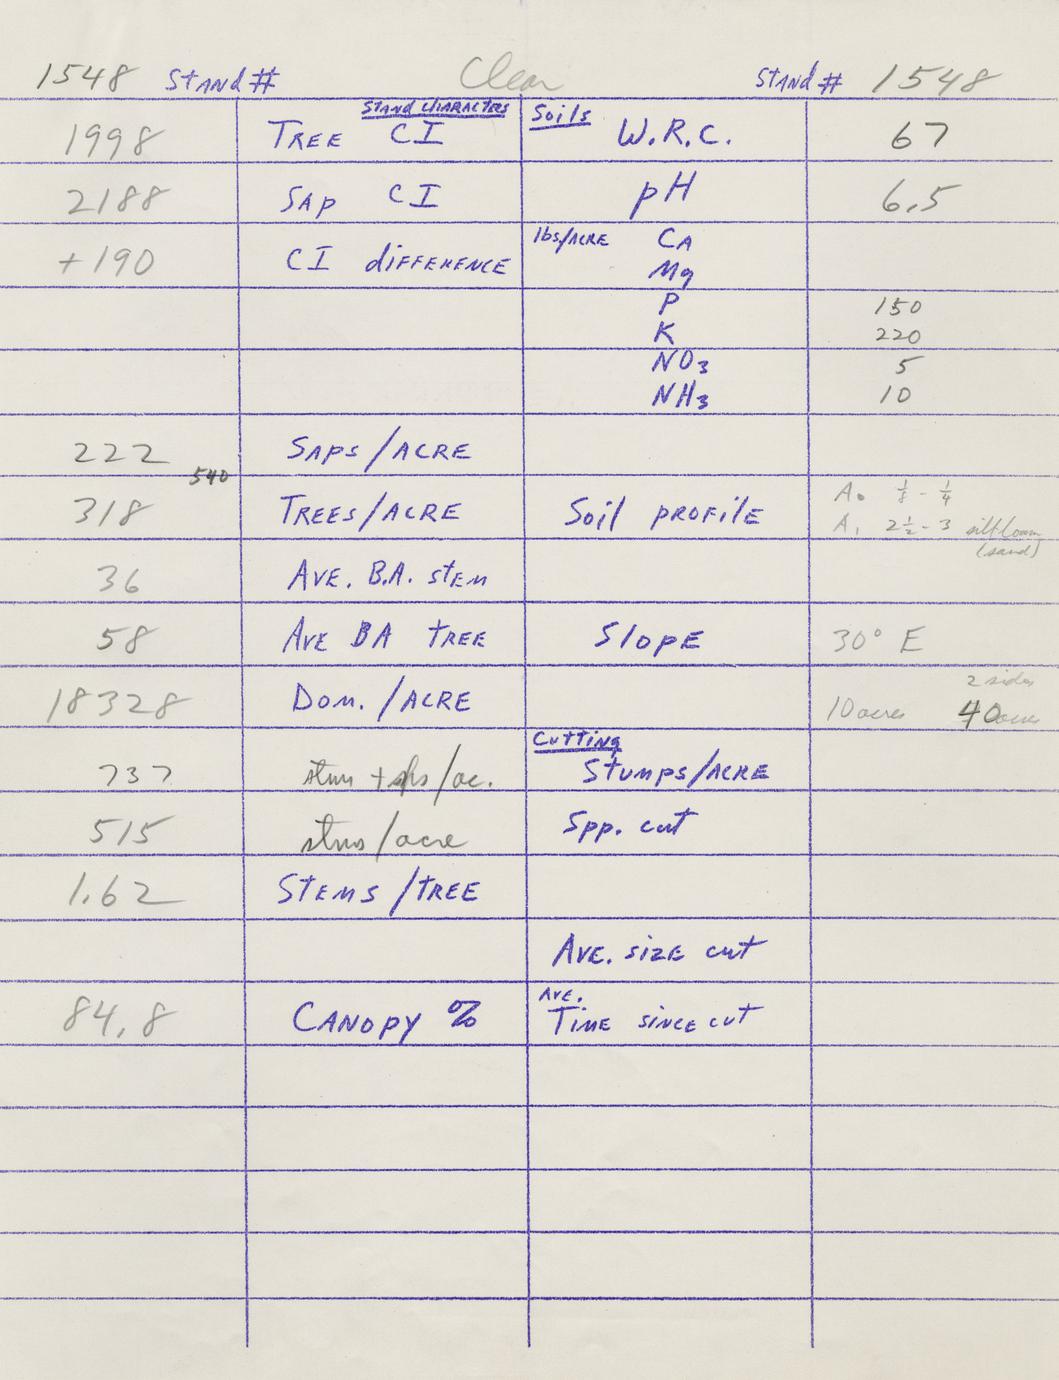 1548 Stand # Clear Stand # 1548
Stand Characters Soils
1998 Tree CI W.R.C. 67
2188 Sap CI pH 6.5
+190 CI difference lbs/acre Ca
Mg
P 150
K 220
NO3 5
NH3 10
222 Saps/acre
540
318 Trees/acre Soil profile A0 1/8 - 1/4
A1 2 1/2 - 3 silt loam
(sand)
36 Ave. B.A. stem
58 Ave BA tree Slope 30° E
18328 Dom./acre 2 sides
10 acres 40 acres
Cutting
737 stms + sps/ac. Stumps/acre
515 stms/acre Spp. cut
1.62 Stems/tree
Ave. size cut
84.8 Canopy % Ave. Time since cut